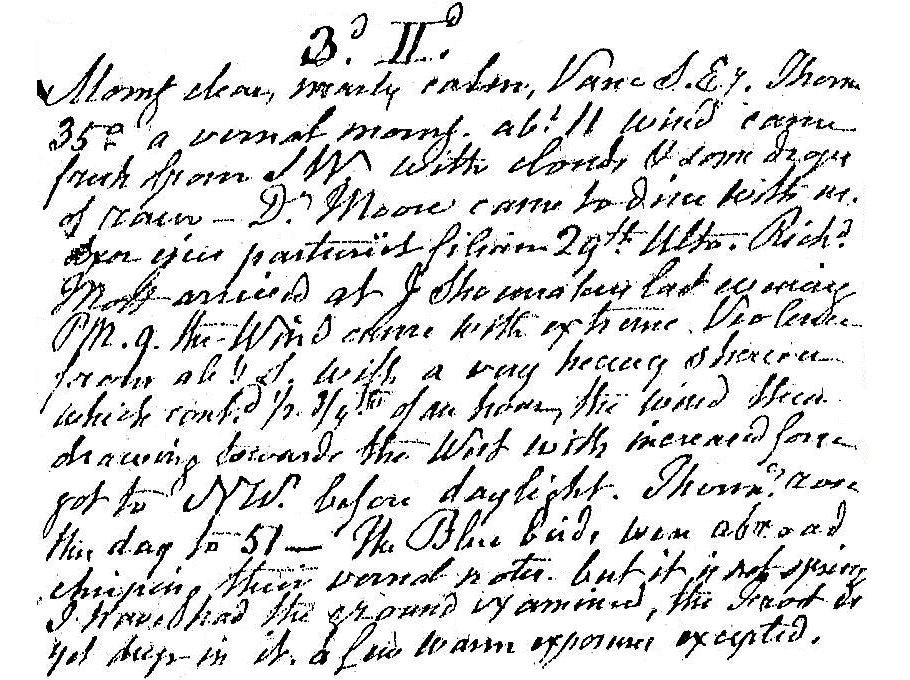 3.d II.d
Morng clear, nearly calm, Vane S.Ey. Therm.
35° a vernal morng. abt. 11 wind came
fresh from SW with clouds & some drops
of rain — Dr. Moore came to dine with us.
parturiit filiam 29th Ulto. Richd.
arrived at J Shoemakers last evening
PM. 9. the Wind came with extreme Violence
from abt. S. with a very heavy shower
which contd. 1/2 3/4ths of an hour, the wind then
drawing towards the West with increased force
got to NW. before daylight. Thermr. rose
this day to 51 — The Blue birds were abroad
chirping their vernal notes. but it is not spring
I have had the ground examined, the Frost is
yet deep in it. a few warm exposures excepted.